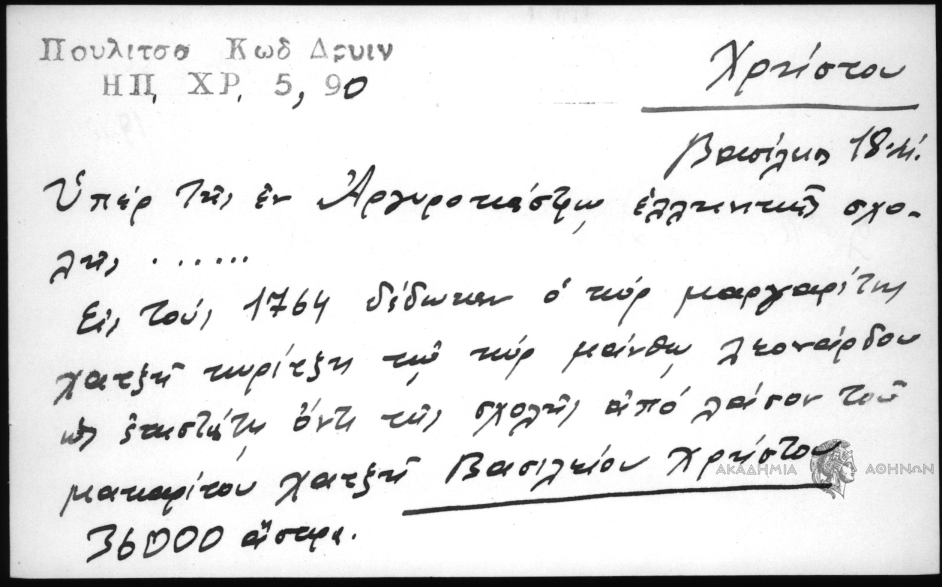 Πουλιτσα Κωδ Δρυιν
ΗΠ. ΧΡ. 5, 90
Χρήστου
Βασίλης 18·αἰ.
Ὑπέρ τῆς ἐν Ἀργυροκάστρῳ ἑλληνικῆς σχο-
λῆς ......
Εἰς τούς 1764 δίδωκεν ὁ κύρ μαργαρίτης
χατζῆ κυρίτζη τῷ κύρ μάνθῳ λεονάρδου
ὡς ἐπιστάτῃ ὄντι τῆς σχολῆς ἀπό λάσον τοῦ
μακαρίτου χατζῆ Βασιλείου Χρήστου
36000 ἄσπρα.
ΑΚΑΔΗΜΙΑ ΑΘΗΝΩΝ